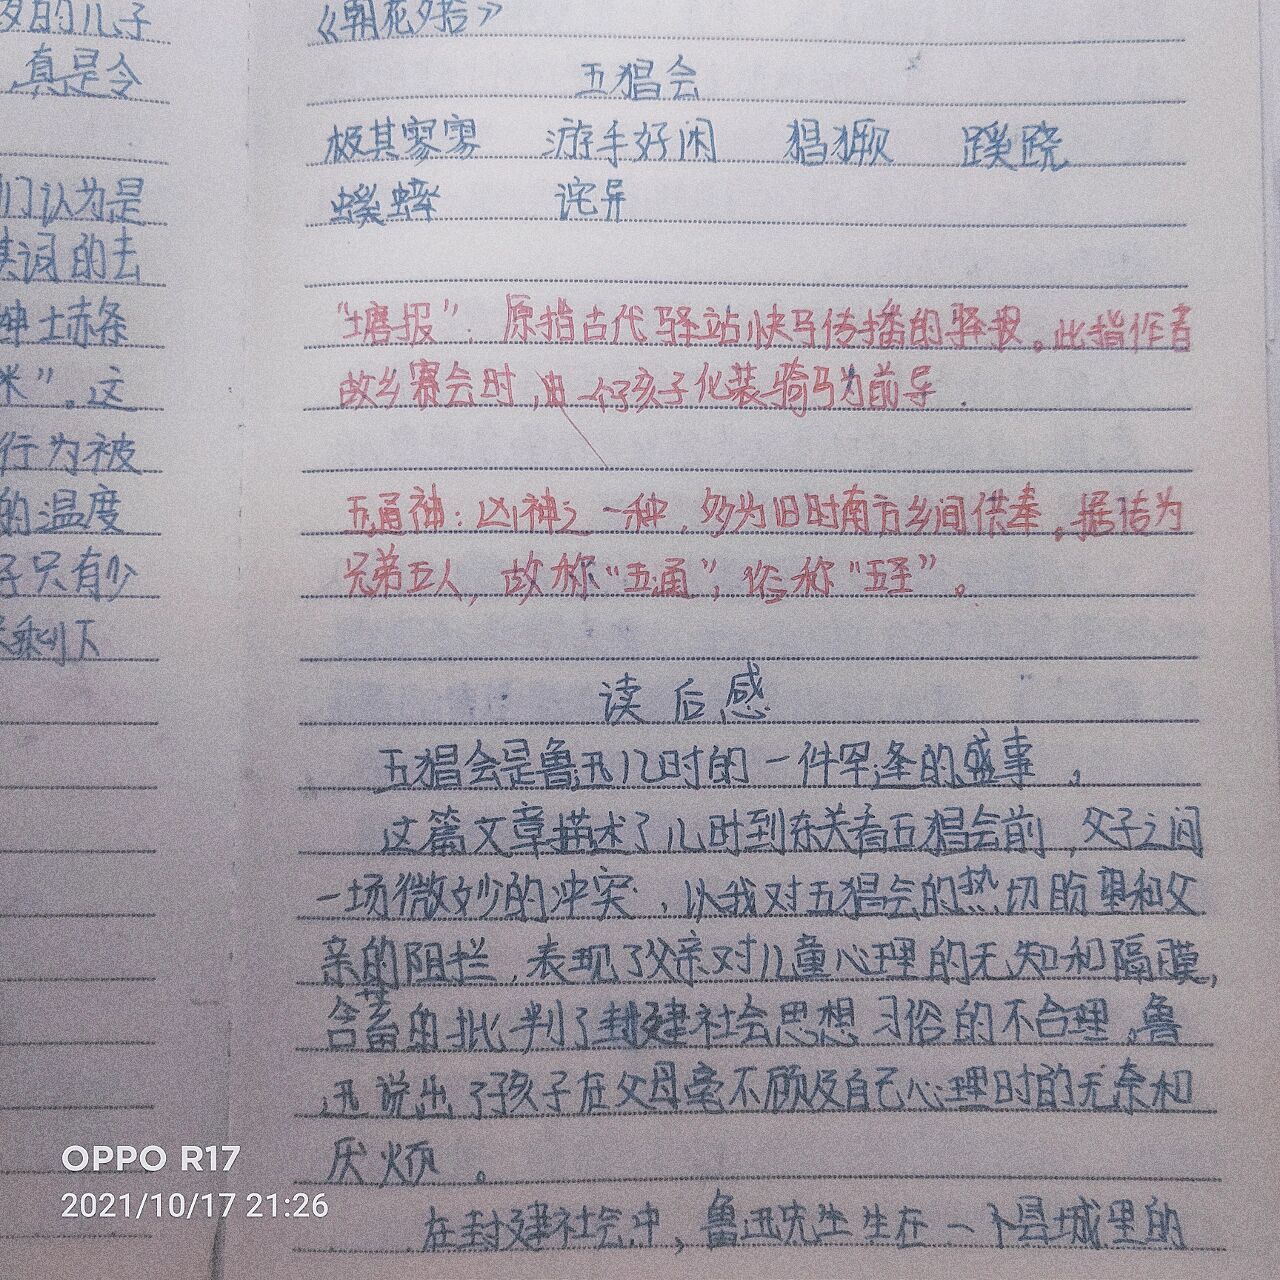 岁的儿子
，真是令
们认为是
其词的去
绅士赤条
米”。这
行为被
的温度
子只有少
剩下
《朝花夕拾》
五猖会
极其寥寥 游手好闲 猖獗 蹊跷
蟋蟀 诧异
“塘报”：原指古代驿站快马传播的驿报。此指作者
故乡赛会时，由一个孩子化装骑马为前导.
五通神：凶神之一种，多为旧时南方乡间供奉。据传为
兄弟五人，故称“五通”，俗称“五圣”。
读后感
五猖会是鲁迅儿时的一件罕逢的盛事，
这篇文章描述了儿时到东关看五猖会前，父子之间
一场微妙的冲突，以我对五猖会的热切盼望和父
亲的阻拦，表现了父亲对儿童心理的无知和隔膜，
含蓄的批判了封建社会思想习俗的不合理。鲁
迅说出了孩子在父母毫不顾及自己心理时的无奈和
厌烦。
在封建社会中，鲁迅先生生在一个县城里的
OPPO R17
2021/10/17 21:26